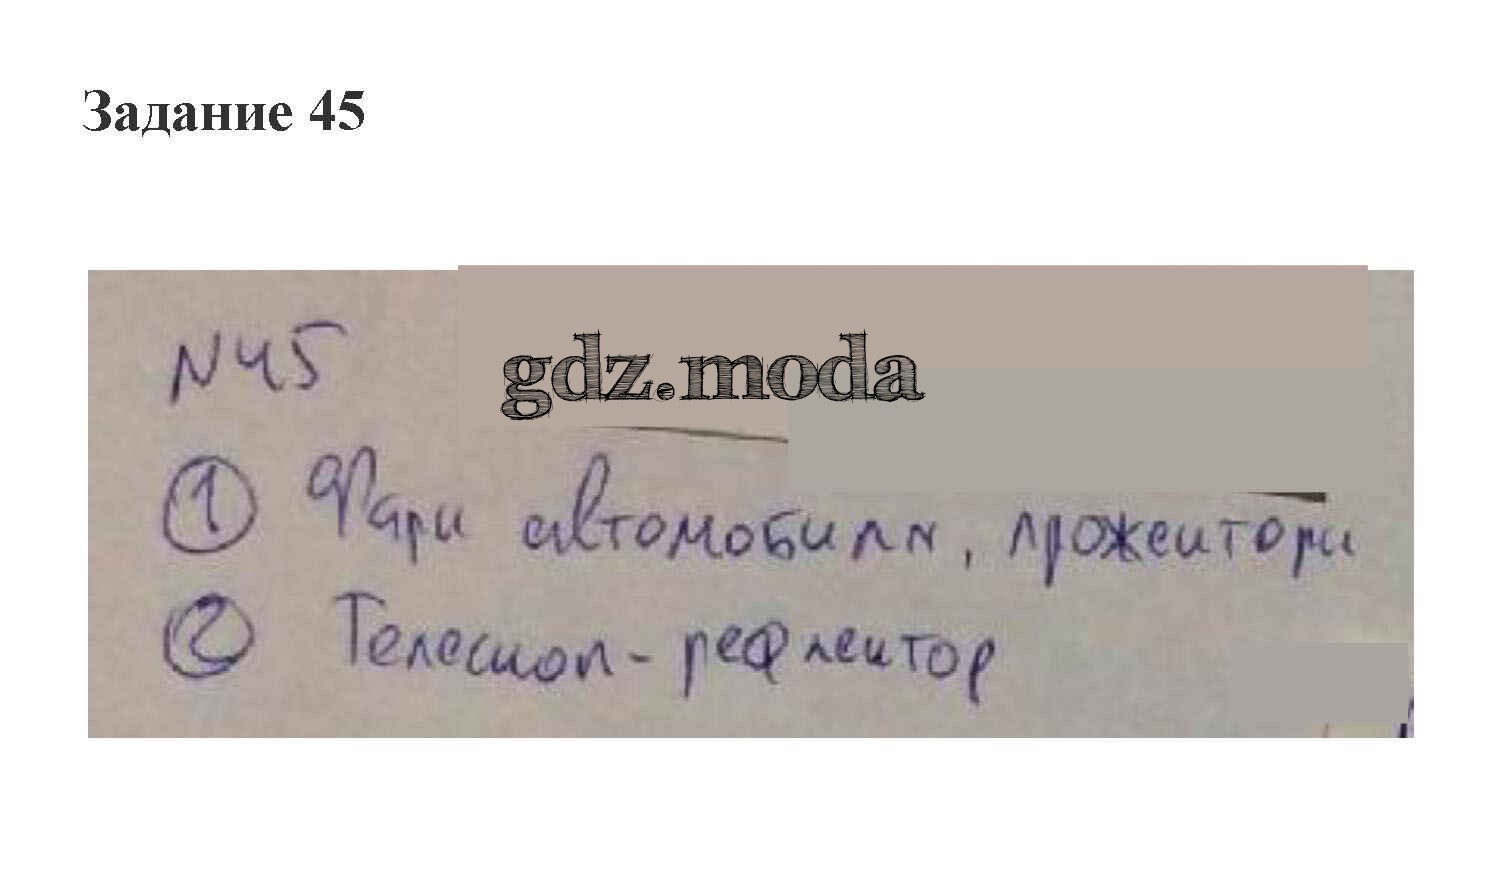 Задание 45
N45
gdz.moda
1 Фары автомобиля, прожекторы
2 Телескоп - рефлектор